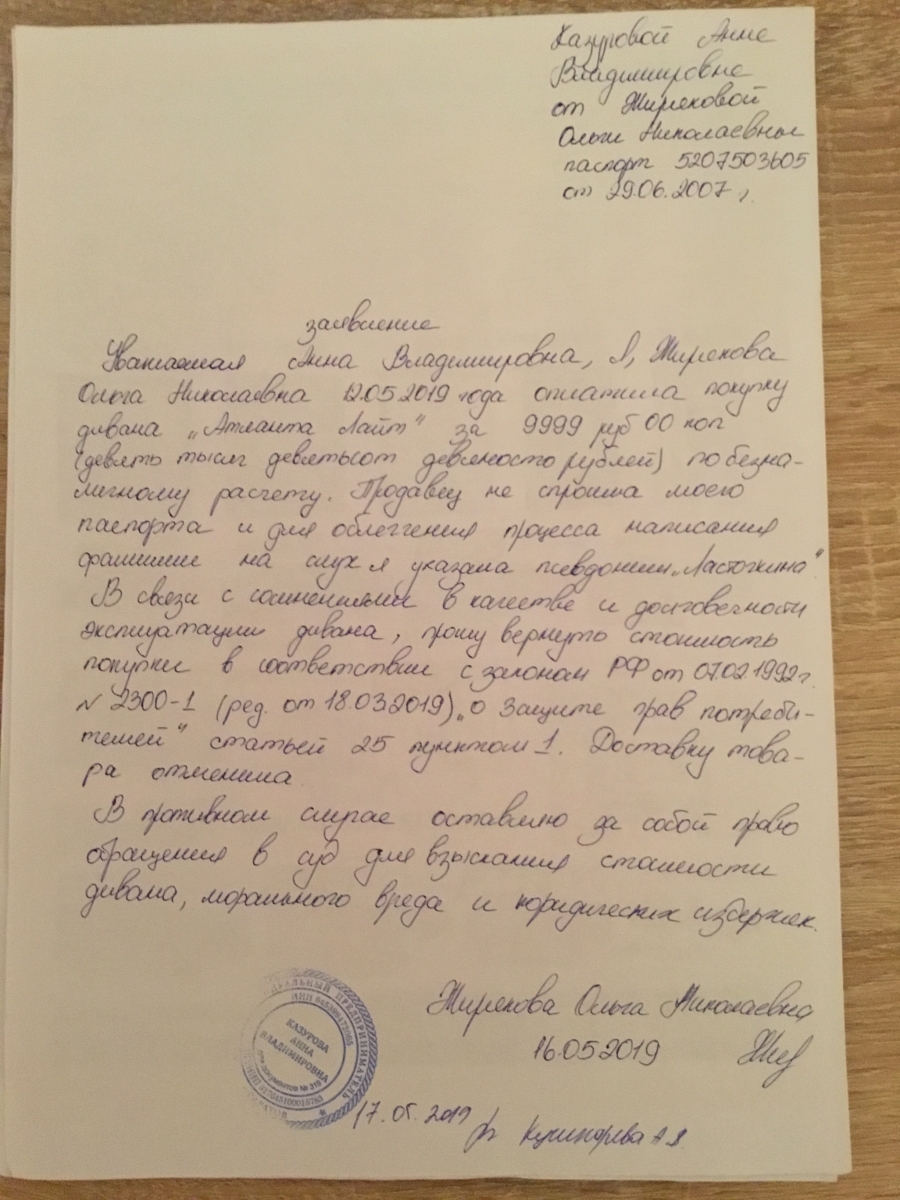 Казуровой Анне
Владимировне
от Жирековой
Ольги Николаевны
паспорт 5207503605
от 29.06.2007 г.
заявление
Уважаемая Анна Владимировна, Я, Жирекова
Ольга Николаевна 12.05.2019 года оплатила покупку
дивана „Атланта Лайт" за 9999 руб 00 коп
(девять тысяч девятьсот девяносто рублей) по безна-
личному расчету. Продавец не спросила моего
паспорта и для облегчения процесса написания
фамилии на слух я указала псевдоним „Ласточкина"
В связи с сомнениями в качестве и долговечности
эксплуатации дивана, прошу вернуть стоимость
покупки в соответствии с законом РФ от 07.02.1992г.
N 2300-1 (ред. от 18.03.2019) „О защите прав потреби-
телей" статьей 25 пунктом 1. Доставку това-
ра отменила
В противном случае оставляю за собой право
обращения в суд для взыскания стоимости
дивана, морального вреда и юридических издержек.
Жирекова Ольга Николаевна
16.05.2019
17.05.2019
ПРЕДПРИНИМАТЕЛЬ
КАЗУРОВА
АННА
ВЛАДИМИРОВНА
для документов № 319